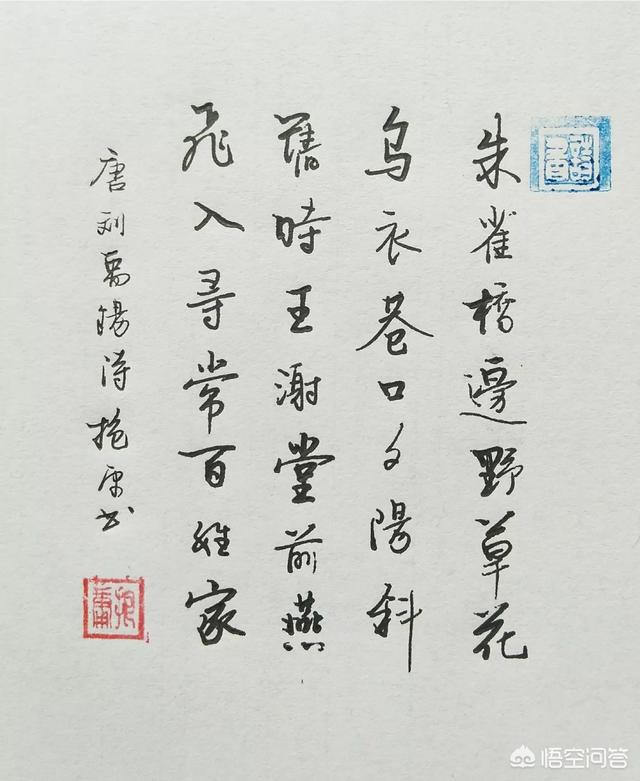 朱雀橋邊野草花
乌衣巷口夕陽斜
舊時王謝堂前燕
飛入尋常百姓家
唐刘禹錫詩抱庸书
悟空问答